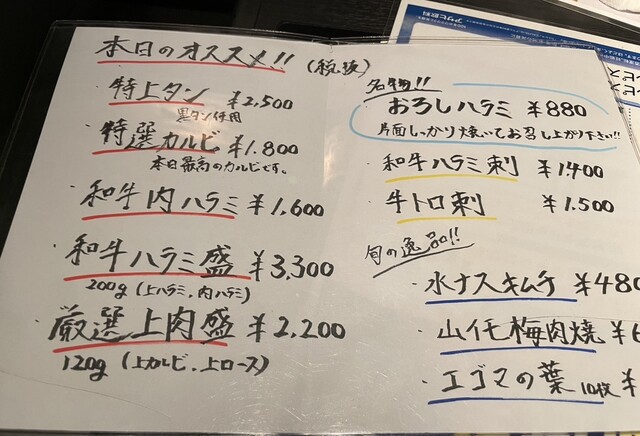 本日のオススメ!! (税抜)
・特上タン ¥2,500
黒タン使用
・特選カルビ ¥1.800
本日最高のカルビです。
・和牛内ハラミ ¥1,600
・和牛ハラミ盛 ¥3,300
200g (上ハラミ,内ハラミ)
・厳選上肉盛 ¥2,200
120g (上カルビ.上ロース)
名物!!
おろしハラミ ¥880
片面しっかり焼いてお召し上がり下さい!!
・和牛ハラミ刺 ¥1400
・牛トロ刺 ¥1.500
旬の逸品!!
・水ナスキムチ ¥480
・山イモ梅肉焼 ¥
・エゴマの葉 10枚 ¥
アサヒ飲料